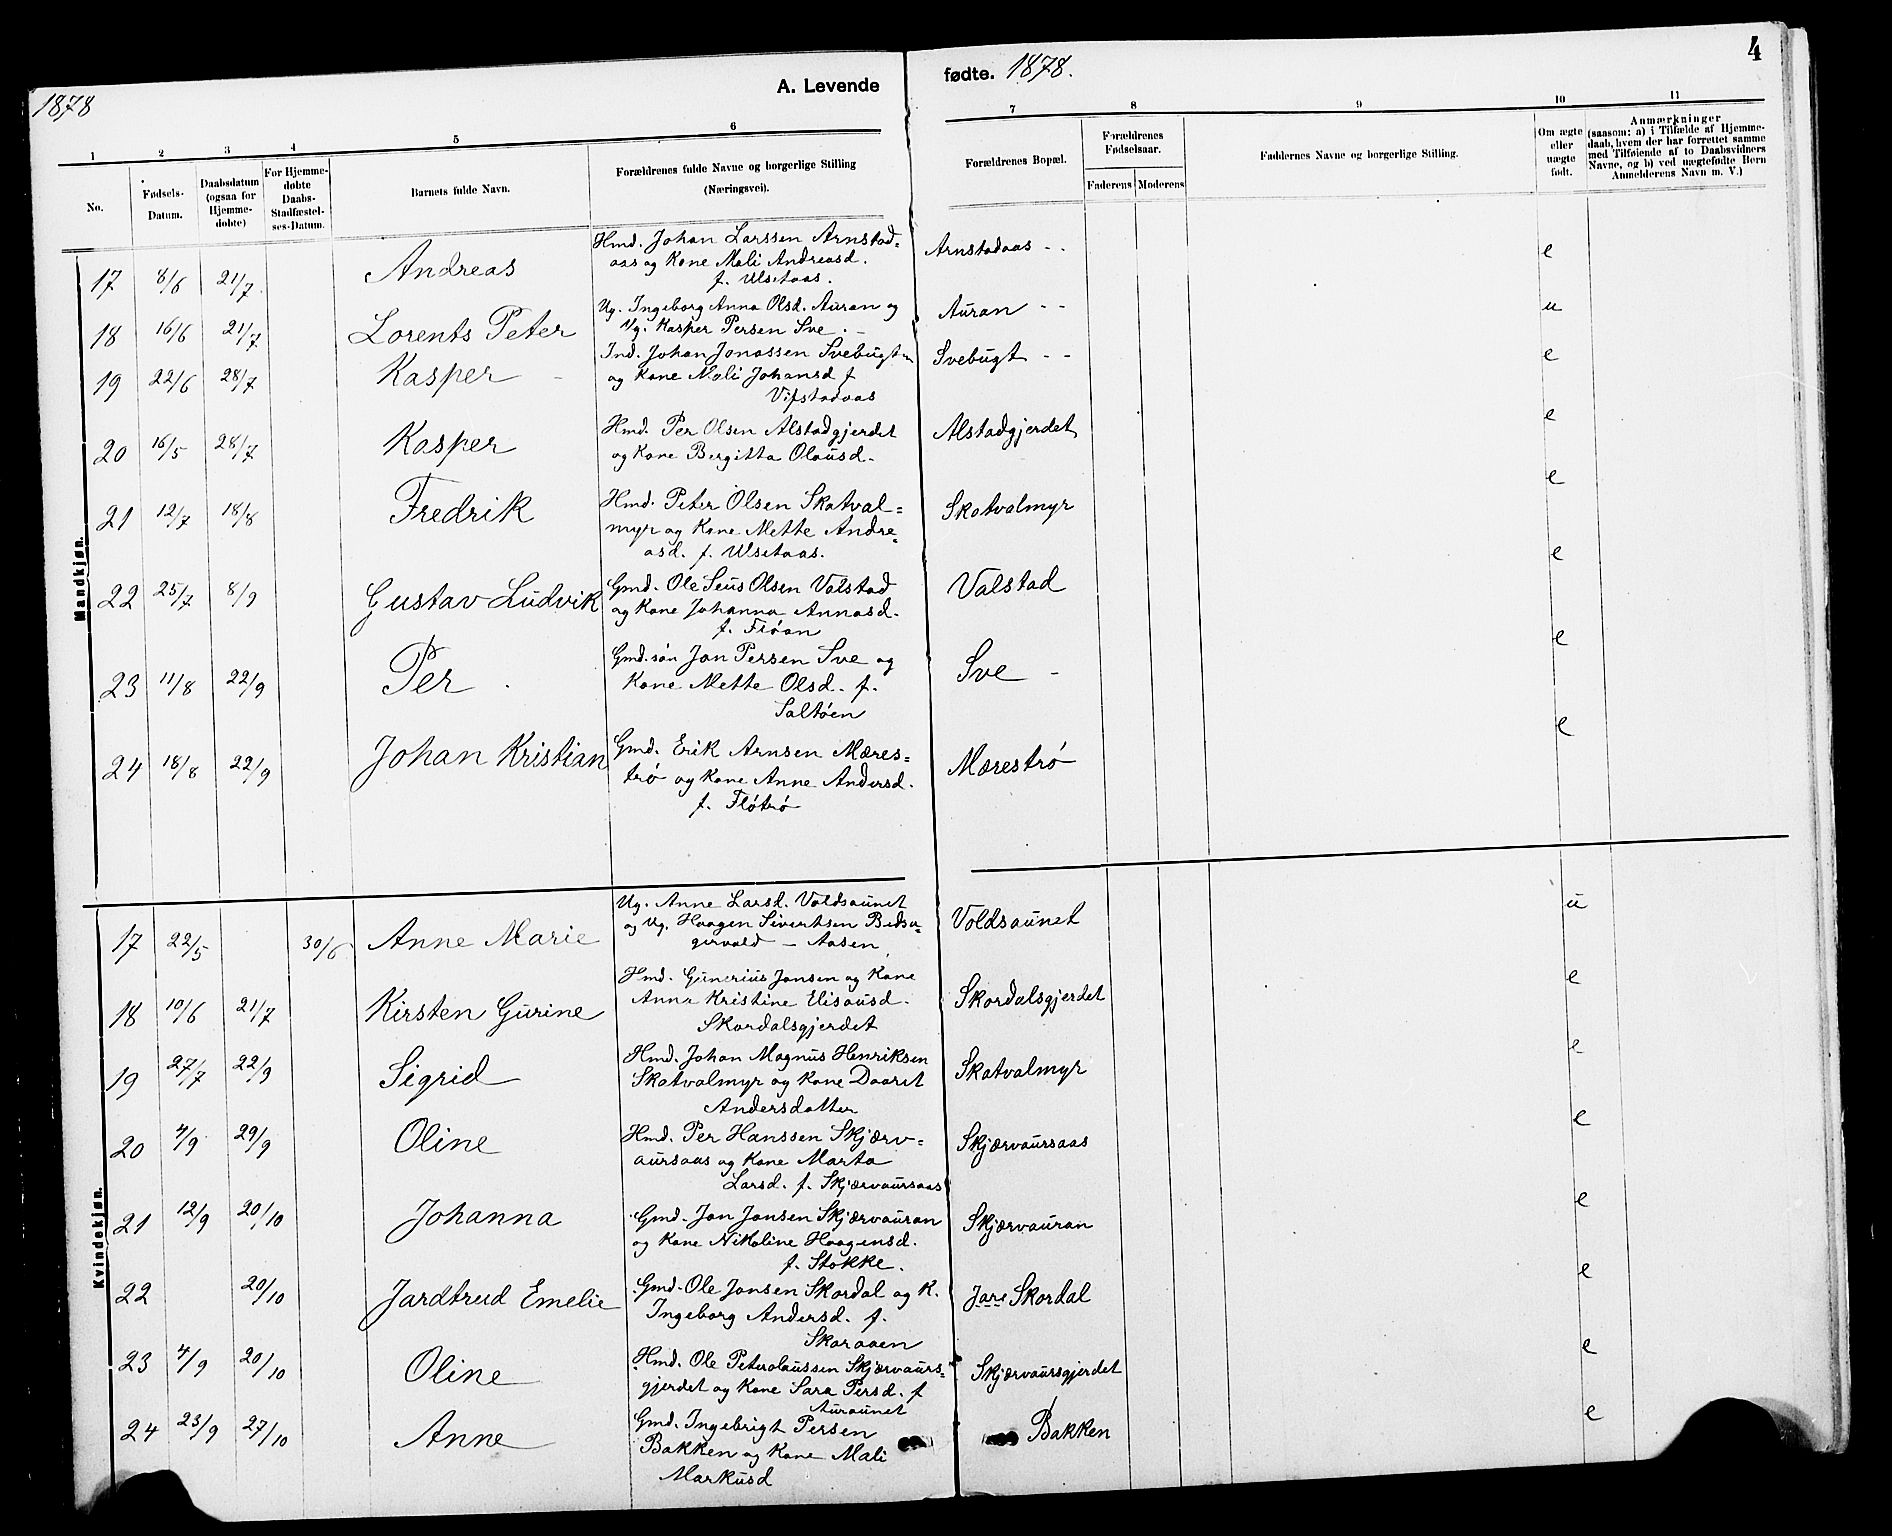 1878
A. Levende
fødte. 1878.
4
1 2 3 4 5 6 7 8 9 10 11
No.
Fødsels-
Datum.
Daabsdatum
(ogsaa for
Hjemme-
døbte)
For Hjemme-
døbte
Daabs-
Stadfæstel-
ses-Datum.
Barnets fulde Navn.
Forældrenes fulde Navne og borgerlige Stilling
(Næringsvei).
Forældrenes Bopæl.
Forældrenes
Fødselsaar.
Faderens Moderens
Faddernes Navne og borgerlige Stilling.
Om ægte
eller
uægte
født.
Anmærkninger
(saasom: a) i Tilfælde af Hjemme-
daab, hvem der har forrettet samme
med Tilføiende af to Daabsvidners
Navne, og b) ved uægtefødte Børn
Anmelderens Navn m. V.)
Mandkjøn.
17 8/6 21/7 Andreas
Hmd. Johan Larssen Arnstad=
aas og Kone Mali Andreasd.
f. Ulsetaas.
Arnstadaas - - e
18 16/6 21/7 Lorents Peter
Ug. Ingeborg Anna Olsd. Auran og
Ug. Kasper Persen Sve. -
Auran - - u
19 22/6 28/7 Kasper -
Ind. Johan Jonassen Svebugt
og Kone Mali Johansd f
Vifstadaas
Svebugt - - e
20 16/5 28/7 Kasper
Hmd. Per Olsen Alstadgjerdet
og Kone Bergitta Olausd.
Alstadgjerdet e
21 12/7 18/8 Fredrik
Hmd. Peter Olsen Skatval=
myr og Kone Mette Andre=
asd. f. Ulsetaas.
Skatvalmyr e
22 25/7 8/9 Gustav Ludvik
Gmd. Ole Seus Olsen Valstad
og Kone Johanna Annasd.
f. Fløan
Valstad e
23 11/8 22/9 Per.
Gmd.søn Jon Persen Sve og
Kone Mette Olsd. f.
Saltøen
Sve - e
24 18/8 22/9 Johan Kristian
Gmd. Erik Arnsen Mæres=
trø og Kone Anne Andersd.
f. Fløtrø
Mærestrø e
Kvindekjøn.
17 22/5 30/6 Anne Marie
Ug. Anne Larsd. Voldsaunet
og Ug. Haagen Sivertsen
- Aasen
Voldsaunet u
18 10/6 21/7 Kirsten Gurine
Hmd. Gunerius Jonsen og Kone
Anna Kristine Elisausd.
Skordalsgjerdet
Skordalsgjerdet e
19 27/7 22/9 Sigrid
Hmd. Johan Magnus Henriksen
Skatvalmyr og Kone Daaret
Andersdatter
Skatvalmyr e
20 4/9 29/9 Oline
Hmd. Per Hanssen Skjærv=
aursaas og Kone Marta
Larsd. f. Skjærvaursaas
Skjærvaursaas e
21 12/9 20/10 Johanna
Gmd. Jon Jonsen Skjærvauran
og Kone Nikoline Haagensd.
f. Stokke.
Skjærvauran e
22 20/10 Jardtrud Emelie
Gmd. Ole Jonsen Skordal og K.
Ingeborg Andersd. f.
Skaraaen
Skordal e
23 4/9 20/10 Oline
Hmd. Ole Peterolaussen Skjærvaurs=
gjerdet og Kone Sara Persd. f
Auraunet
Skjærvaursgjerdet e
24 23/9 27/10 Anne
Gmd. Ingebrigt Persen
Bakken og Kone Mali
Markusd
Bakken e